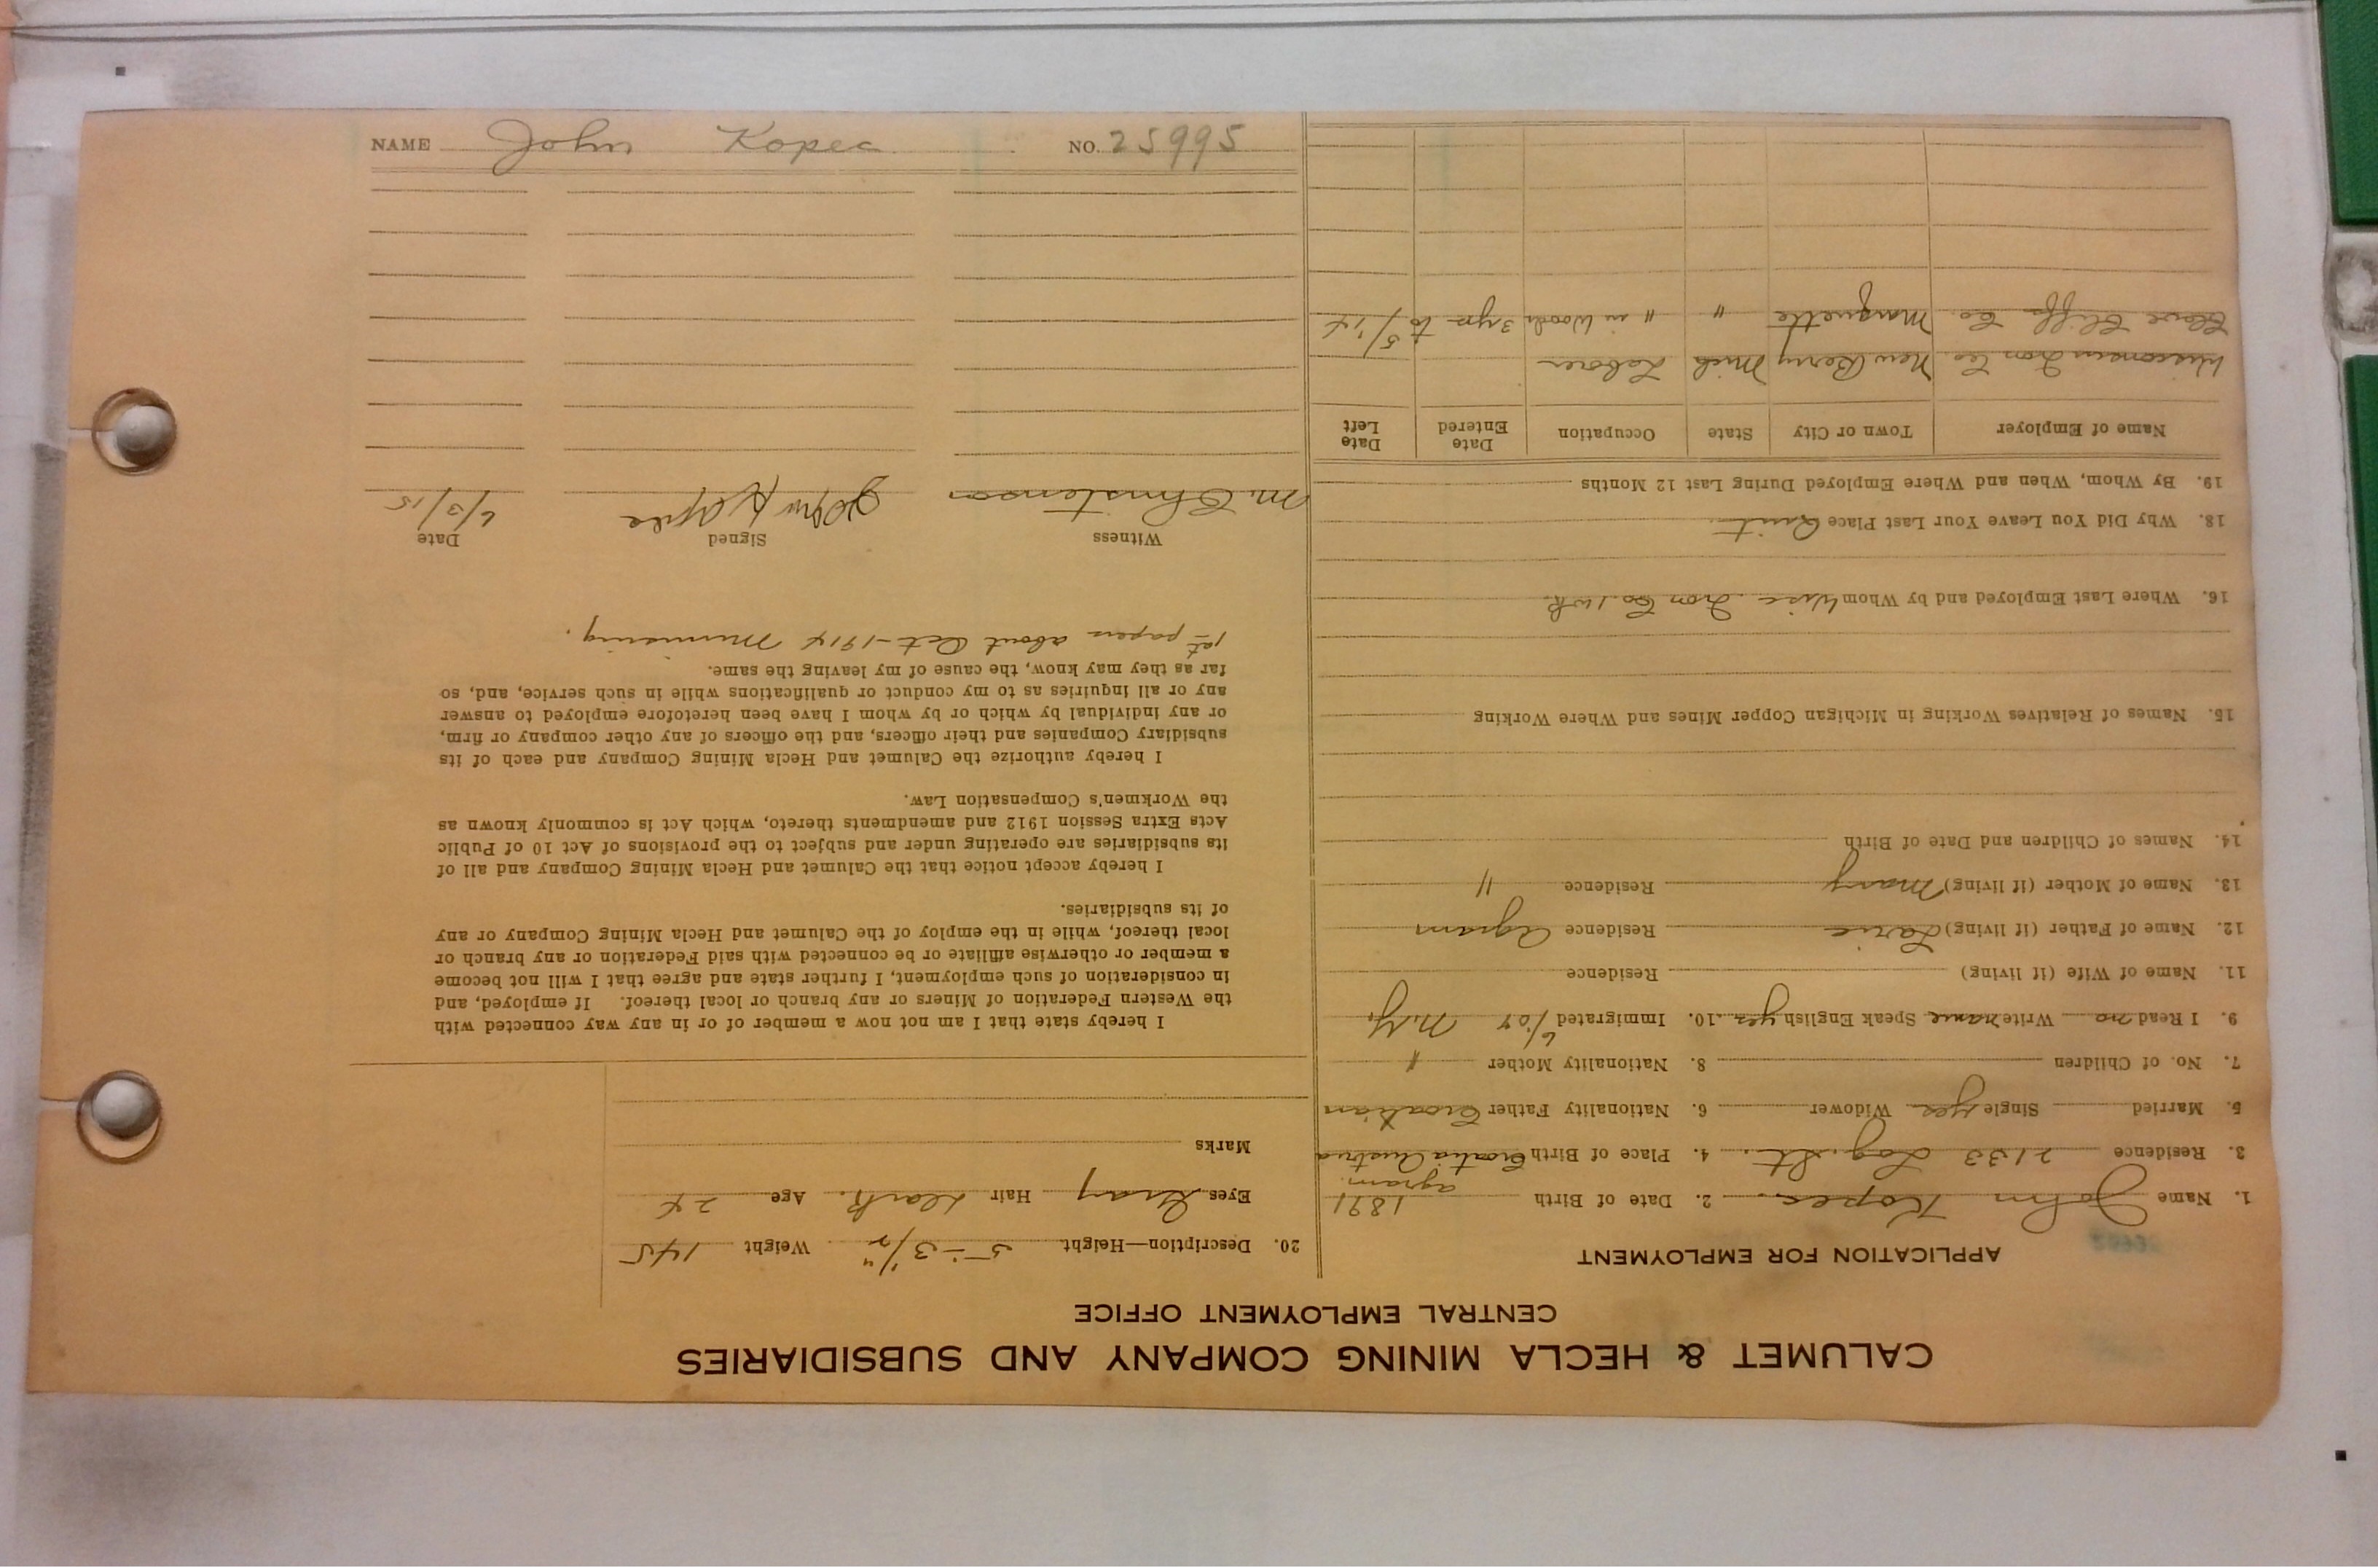 CALUMET & HECLA MINING COMPANY AND SUBSIDIARIES
CENTRAL EMPLOYMENT OFFICE
APPLICATION FOR EMPLOYMENT
1. Name John Kopec 2. Date of Birth 1891
agram
3. Residence 2133 Log. St. 4. Place of Birth Croatia Austria
5. Married Single yes Widower 6. Nationality Father Croatian
7. No. of Children 8. Nationality Mother "
9. I Read no Write name Speak English yes 10. Immigrated 6/07 N.Y.
11. Name of Wife (if living) Residence
12. Name of Father (if living) Residence Agram
13. Name of Mother (if living) Mary Residence "
14. Names of Children and Date of Birth
15. Names of Relatives Working in Michigan Copper Mines and Where Working
16. Where Last Employed and by Whom Wisc. Iron Co. 1 wk.
18. Why Did You Leave Your Last Place Quit
19. By Whom, When and Where Employed During Last 12 Months
Name of Employer Town or City State Occupation Date Entered Date Left
Wisconsin Iron Co. New Berry Mich Laborer
Cleve Cliffs Co. Marquette " " in Woods 3 yrs to 5/14
20. Description—Height 5-3 1/2" Weight 145
Eyes Gray Hair Dark. Age 24
Marks
I hereby state that I am not now a member of or in any way connected with
the Western Federation of Miners or any branch or local thereof. If employed, and
in consideration of such employment, I further state and agree that I will not become
a member or otherwise affiliate or be connected with said Federation or any branch or
local thereof, while in the employ of the Calumet and Hecla Mining Company or any
of its subsidiaries.
I hereby accept notice that the Calumet and Hecla Mining Company and all of
its subsidiaries are operating under and subject to the provisions of Act 10 of Public
Acts Extra Session 1912 and amendments thereto, which Act is commonly known as
the Workmen's Compensation Law.
I hereby authorize the Calumet and Hecla Mining Company and each of its
subsidiary Companies and their officers, and the officers of any other company or firm,
or any individual by which or by whom I have been heretofore employed to answer
any or all inquiries as to my conduct or qualifications while in such service, and, so
far as they may know, the cause of my leaving the same.
1st papers about Oct-1914 Munising.
Witness Signed Date
M. Christensen John Kopec 6/3/15
NAME John Kopec NO. 25995